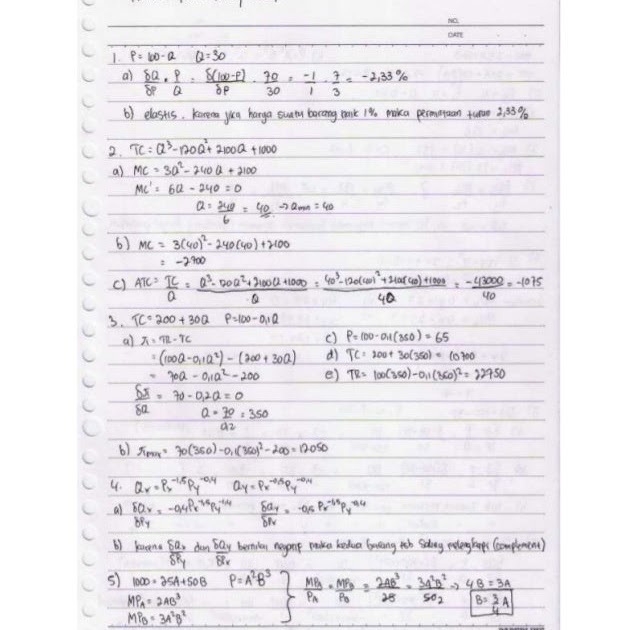 NO.
DATE
1. P = 100 - Q    Q = 30
a) δQ/δP . P/Q = δ(100-P)/δP . 70/30 = -1/1 . 7/3 = -2,33 %
b) elastis, karena jika harga suatu barang naik 1% maka permintaan turun 2,33%
2. TC = Q³ - 120Q² + 2100Q + 1000
a) MC = 3Q² - 240Q + 2100
MC' = 6Q - 240 = 0
Q = 240/6 = 40 → Qmin = 40
b) MC = 3(40)² - 240(40) + 2100
= -2700
c) ATC = TC/Q = Q³ - 120Q² + 2100Q + 1000/Q = 40³ - 120(40)² + 2100(40) + 1000/40 = -43000/40 = -1075
3. TC = 200 + 30Q    P = 100 - 0,1Q
a) π = TR - TC
= (100Q - 0,1Q²) - (200 + 30Q)
= 70Q - 0,1Q² - 200
δπ/δQ = 70 - 0,2Q = 0
Q = 70/0,2 = 350
c) P = 100 - 0,1(350) = 65
d) TC = 200 + 30(350) = 10700
e) TR = 100(350) - 0,1(350)² = 22750
b) πmax = 70(350) - 0,1(350)² - 200 = 12050
4. Qx = Px^-1,5 Py^-0,4    Qy = Px^-0,5 Py^-0,4
a) δQx/δPy = -0,4 Px^-1,5 Py^-1,4    δQy/δPx = -0,5 Px^-1,5 Py^-0,4
b) karena δQx/δPy dan δQy/δPx bernilai negatif maka kedua barang tsb saling melengkapi (complement)
5) 1000 = 25A + 50B    P = A²B³
MPA = 2AB³
MPB = 3A²B²
MPA/PA = MPB/PB = 2AB³/25 = 3A²B²/50 → 4B = 3A
B = 3/4 A